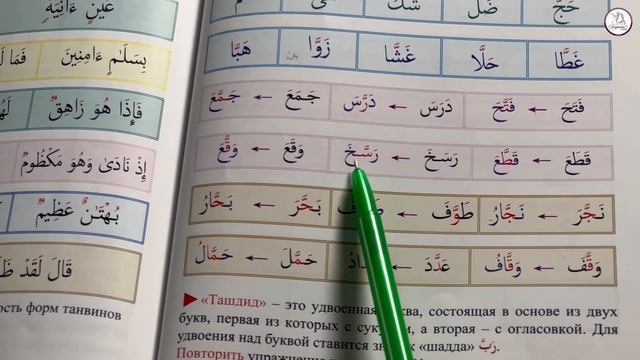 عَيْنٍ ءَانِيَةٍ
بِسَلَـٰمٍ ءَامِنِينَ
فَإِذَا هُوَ زَاهِقٌ
إِذْ نَادَىٰ وَهُوَ مَكْظُومٌ
بُهْتَـٰنٌ عَظِيمٌ
قَالَ لَقَدْ
حَجَّ ضَلَّ شَكَّ
غَطَّا حَلَّا غَشَّا زَوَّا هَبَّا
فَتَحَ ← فَتَّحَ دَرَسَ ← دَرَّسَ جَمَعَ ← جَمَّعَ
قَطَعَ ← قَطَّعَ رَسَخَ ← رَسَّخَ وَقَعَ ← وَقَّعَ
نَجَّرَ ← نَجَّارُ طَوَّفَ ← بَحَّرَ ← بَحَّارُ
وَقَّفَ ← وَقَّافُ عَدَّدَ ← حَمَّلَ ← حَمَّالُ
«Ташдид» – это удвоенная буква, состоящая в основе из двух
букв, первая из которых с сукуном, а вторая – с огласовкой. Для
удвоения над буквой ставится знак «шадда» رَبَّ.
Повторить упражнение
ость форм танвинов